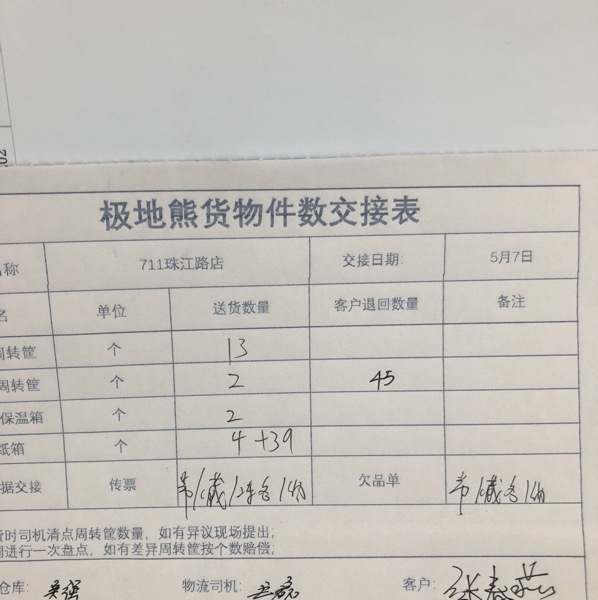 极地熊货物件数交接表
名称 711珠江路店 交接日期: 5月7日
名 单位 送货数量 客户退回数量 备注
周转筐 个 13
周转筐 个 2 45
保温箱 个 2
纸箱 个 4+39
据交接 传票 欠品单
货时司机清点周转筐数量，如有异议现场提出；
周进行一次盘点，如有差异周转筐按个数赔偿；
仓库: 物流司机: 客户: 张春燕